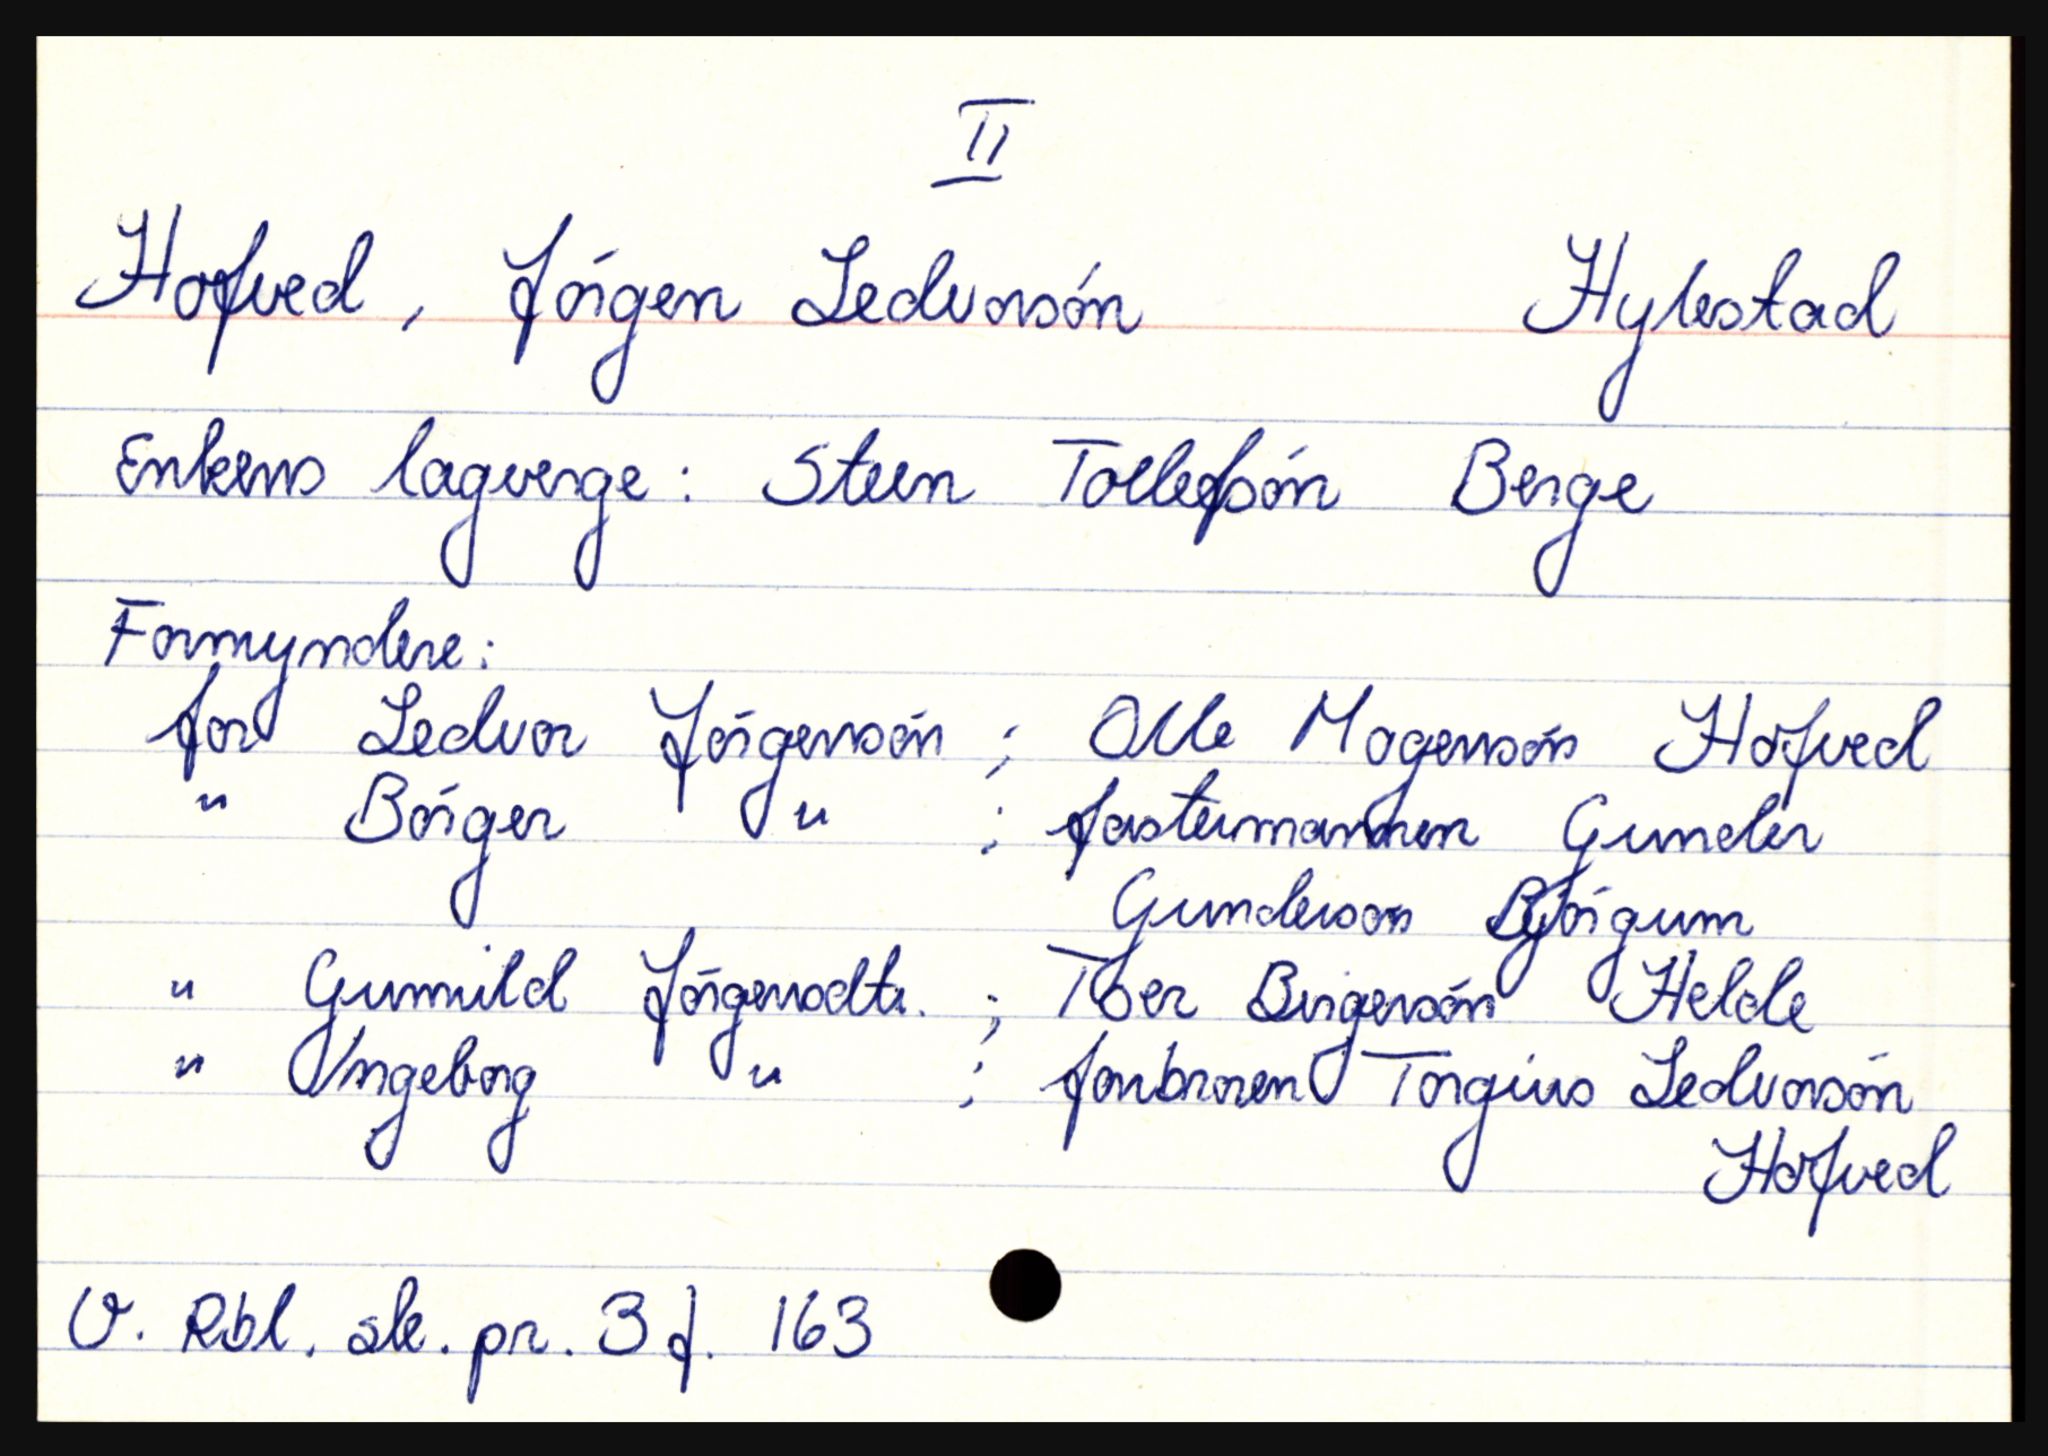 II
Hofved, Jórgen Ledvorsón Hylestad
Enkens lagverge: Steen Tollefsón Berge
Formyndere:
for Ledvor Jórgensón ; Olle Mogensón Hofved
" Bórger " ; fastermannen Gunder
Gunderson Bjórgum
" Gunnild Jórgensdtr. ; Tber Birgersón Helle
" Ingeborg " ; farbroren Torgius Ledvorsón
Hofved
V. Rbl. sk. pr. 3 f. 163